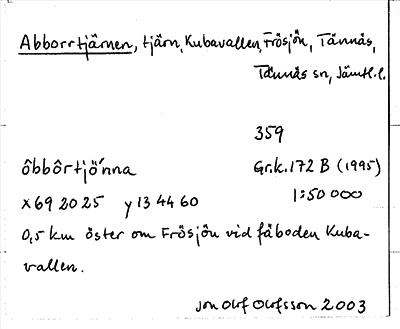 Abborrtjärnen, tjärn, Kubavallen, Frösjön, Tännäs,
Tännäs sn, Jämtl.l.
359
ôbbôrtjö́nna Gr.k. 172 B (1995)
x 69 20 25 y 13 44 60 1:50 000
0,5 km öster om Frösjön vid fäboden Kuba-
vallen.
Jon Olof Olofsson 2003